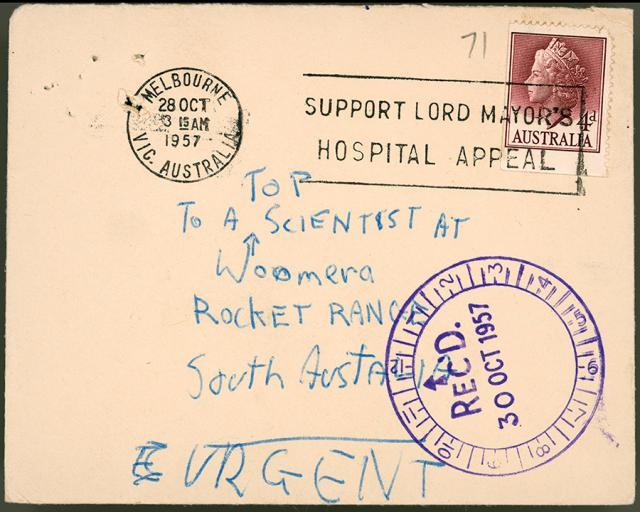 71
MELBOURNE
28 OCT
3 15 AM
1957
VIC. AUSTRALIA
SUPPORT LORD MAYOR'S
HOSPITAL APPEAL
4d
AUSTRALIA
TOP
TO A SCIENTIST AT
Woomera
ROCKET RANGE
South AustAlia
URGENT
REC'D.
30 OCT 1957
1 2 3 4 5 6 7 8 9 10 11 12